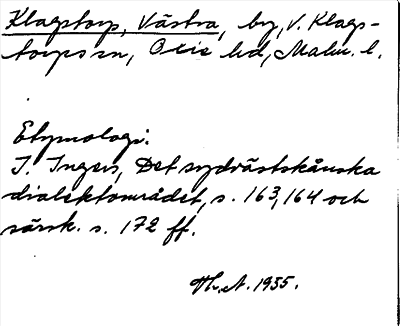 Klagstorp, Västra, by, V. Klags-
torps sn, Oxie hd, Malm. l.
Etymologi:
I. Ingers, Det sydvästskånska
dialektområdet, s. 163, 164 och
särsk. s. 172 ff.
1935.